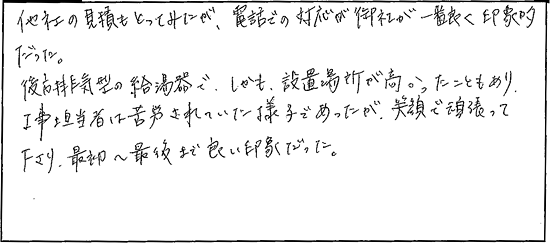 他社の見積もとってみたが、電話での対応が御社が一番良く印象的
だった。
後方排気型の給湯器で、しかも、設置場所が高かったこともあり、
工事担当者は苦労されていた様子であったが、笑顔で頑張って
下さり、最初〜最後まで良い印象だった。